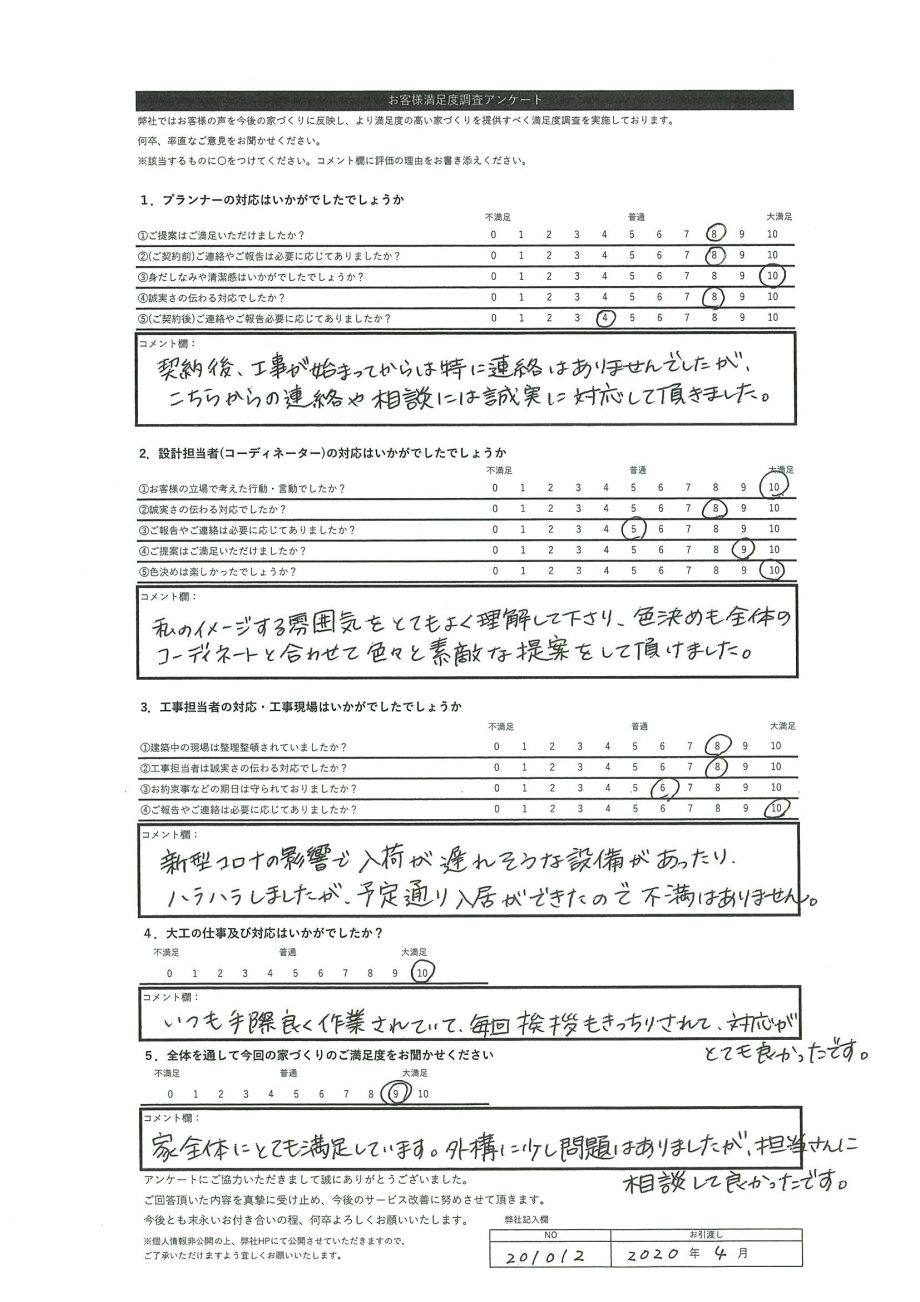 お客様満足度調査アンケート
弊社ではお客様の声を今後の家づくりに反映し、より満足度の高い家づくりを提供すべく満足度調査を実施しております。
何卒、率直なご意見をお聞かせください。
※該当するものに〇をつけてください。コメント欄に評価の理由をお書き添えください。
1．プランナーの対応はいかがでしたでしょうか
不満足 普通 大満足
①ご提案はご満足いただけましたか？ 0 1 2 3 4 5 6 7 8 9 10
②(ご契約前)ご連絡やご報告は必要に応じてありましたか？ 0 1 2 3 4 5 6 7 8 9 10
③身だしなみや清潔感はいかがでしたでしょうか？ 0 1 2 3 4 5 6 7 8 9 10
④誠実さの伝わる対応でしたか？ 0 1 2 3 4 5 6 7 8 9 10
⑤(ご契約後)ご連絡やご報告必要に応じてありましたか？ 0 1 2 3 4 5 6 7 8 9 10
コメント欄：
契約後、工事が始まってからは特に連絡はありませんでしたが、
こちらからの連絡や相談には誠実に対応して頂きました。
2．設計担当者(コーディネーター)の対応はいかがでしたでしょうか
不満足 普通 大満足
①お客様の立場で考えた行動・言動でしたか？ 0 1 2 3 4 5 6 7 8 9 10
②誠実さの伝わる対応でしたか？ 0 1 2 3 4 5 6 7 8 9 10
③ご報告やご連絡は必要に応じてありましたか？ 0 1 2 3 4 5 6 7 8 9 10
④ご提案はご満足いただけましたか？ 0 1 2 3 4 5 6 7 8 9 10
⑤色決めは楽しかったでしょうか？ 0 1 2 3 4 5 6 7 8 9 10
コメント欄：
私のイメージする雰囲気をとてもよく理解して下さり、色決めも全体の
コーディネートと合わせて色々と素敵な提案をして頂けました。
3．工事担当者の対応・工事現場はいかがでしたでしょうか
不満足 普通 大満足
①建築中の現場は整理整頓されていましたか？ 0 1 2 3 4 5 6 7 8 9 10
②工事担当者は誠実さの伝わる対応でしたか？ 0 1 2 3 4 5 6 7 8 9 10
③お約束事などの期日は守られておりましたか？ 0 1 2 3 4 5 6 7 8 9 10
④ご報告やご連絡は必要に応じてありましたか？ 0 1 2 3 4 5 6 7 8 9 10
コメント欄：
新型コロナの影響で入荷が遅れそうな設備があったり、
ハラハラしましたが、予定通り入居ができたので不満はありません。
4．大工の仕事及び対応はいかがでしたか？
不満足 普通 大満足
0 1 2 3 4 5 6 7 8 9 10
コメント欄：
いつも手際良く作業されていて、毎回挨拶もきっちりされて、対応が
とても良かったです。
5．全体を通して今回の家づくりのご満足度をお聞かせください
不満足 普通 大満足
0 1 2 3 4 5 6 7 8 9 10
コメント欄：
家全体にとても満足しています。外構に少し問題はありましたが、担当さんに
相談して良かったです。
アンケートにご協力いただきまして誠にありがとうございました。
ご回答頂いた内容を真摯に受け止め、今後のサービス改善に努めさせて頂きます。
今後とも末永いお付き合いの程、何卒よろしくお願いいたします。
※個人情報非公開の上、弊社HPにて公開させていただきますので、
ご了承いただけますよう宜しくお願いいたします。
弊社記入欄
NO お引渡し
201012 2020 年 4 月